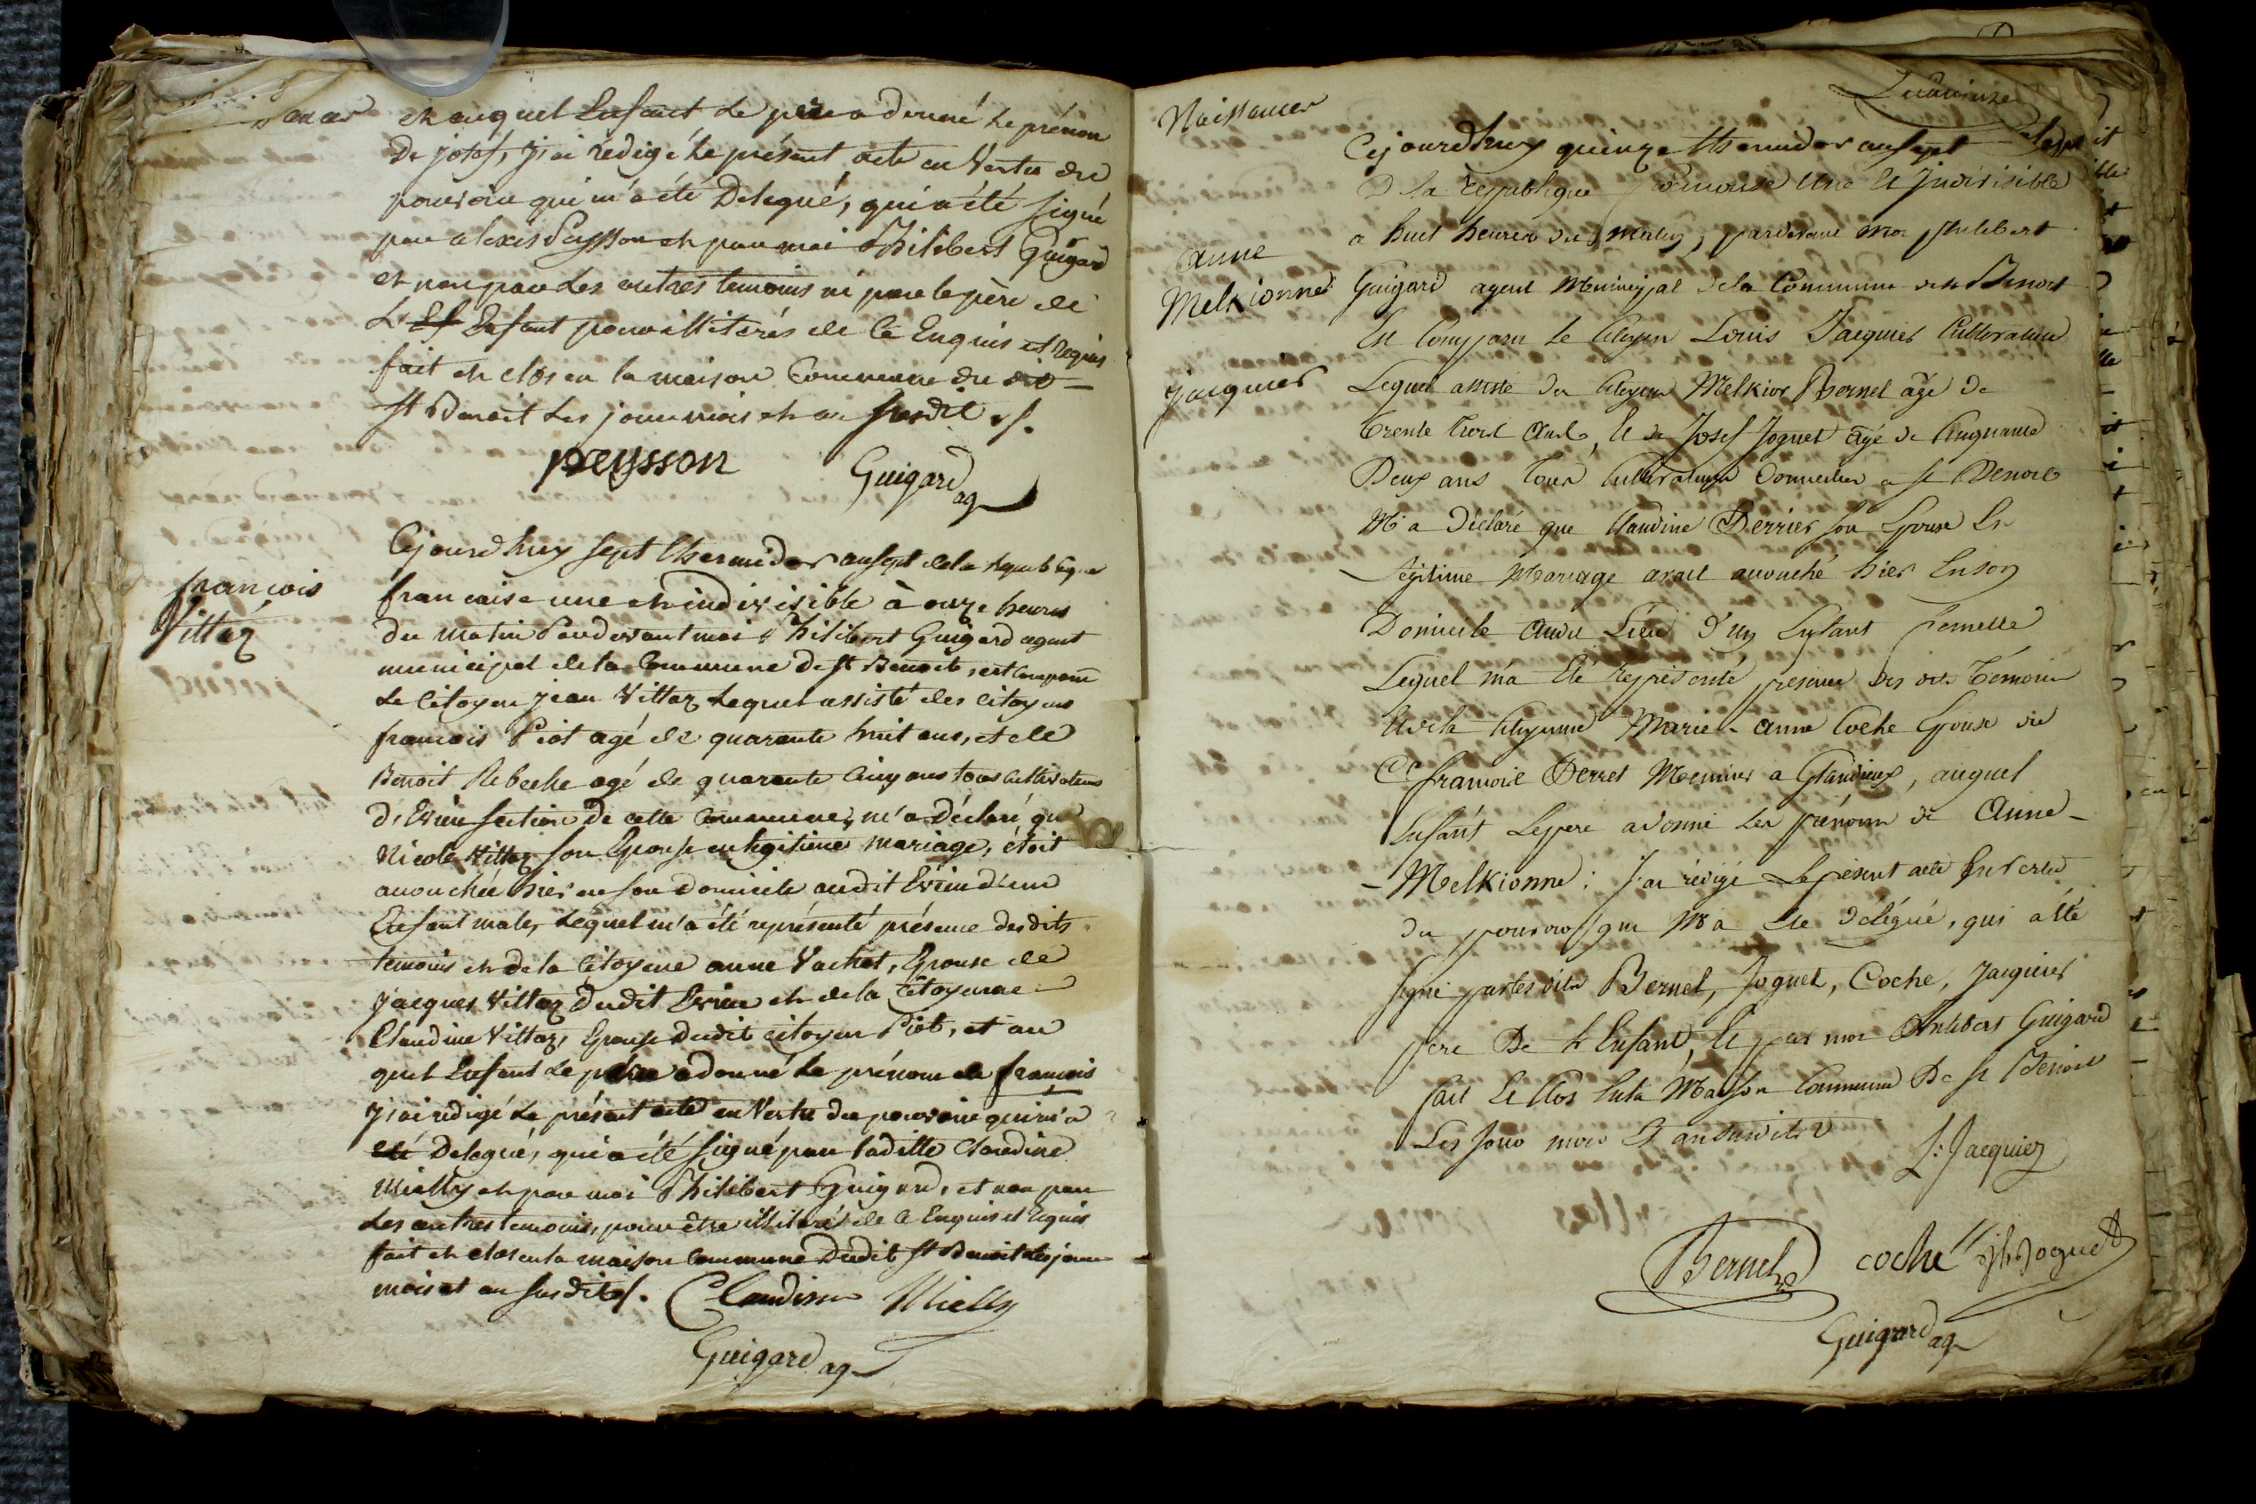 et auquel Enfant Le père a donné Le prénom
De josef, j'ai rédigé Le présent acte en Vertu du
pouvoir qui m'a été Délegué, qui a été signé
par alexis Peysson et par moi Philibert Guigard
et non par Les autres temoins ni par le père de
L'Ef Enfant pour illiterés de Ce Enquis et Requis
fait et clos en la maison Commune du dit
St Benoit Les jour mois et an susdit.
peysson
Guigard ag
françois
Vittoz
Cejourd'huy sept thermidor an sept de la republique
francaise une et indivisible à onze heures
du matin Pardevant moi Philibert Guigard agent
municipal de la Commune De St Benoit, est Comparu
Le Citoyen jean Vittoz Lequel assisté des Citoyens
francois Piot agé de quarante huit ans, et de
Benoit Rebeche agé de quarante Cinq ans tous Cultivateurs
d'Evieu section De cette Commune, m'a Déclaré que
Nicole Vittoz son Epouse en légitime mariage, étoit
accouchée hier en son domicile audit Evieu d'un
Enfant male, Lequel m'a été représenté présence desdits
temoins et de la Citoyene anne Vachet, Epouse de
jacques Vittoz dudit Evieu et de la Citoyenne
Claudine Vittoz, Epouse Dudit citoyen Piot, et au
quel Enfant Le père a donné Le prénom de francois
J'ai rédigé Le présent acte en Vertu du pouvoir qui m'a
été Delegué, qui a été signé par laditte Claudine
Mielly et par moi Philibert Guigard, et non par
Les autres temoins, pour être illiterés de Ce Enquis et Requis
fait et clos en la maison Commune Dudit St Benoit Les jour
mois et an susdits.
Claudine Mielly
Guigard ag
Naissances
anne
Melkionne
jacquier
Cejourd'huy quinze thermidor an sept
D la République francoise Une Et Jndivisible
a huit heures du Matin, pardevant moi philibert
Guigard agent Municipal de la Commune de St Benoit
Est Comparu le Citoyen Louis Jacquier Cultivateur
Lequel assisté du Citoyen Melkior Bernel âgé de
trente huit Ans, Et de Josef Joguet âgé de Cinquante
Deux ans tous Cultivateurs Domiciliés a St Benoit
M'a Déclaré que Claudine Perrier son Epouse En
Légitime Mariage avait accouché hier En son
Domicile audit Lieu d'un Enfant femelle
Lequel m'a Eté Représenté presence des dits Témoins
Et de la Citoyenne Marie-anne Coche Epouse du
Cn francois Perret Meunier a Glandieux, auquel
Enfant Le pere a donné Les prénoms de Anne-
-Melkionne: J'ai rédigé Le présent acte En Vertu
du pouvoir qui M'a Eté Délégué, qui a Eté
signé par les dits Bernel, Joguet, Coche, Jacquier
pere De L'Enfant, Et par moi Philibert Guigard
fait Et Clos En la Maison Commune De St Benoit
Les Jour mois Et an Susdits
L: Jacquier
Bernel coche jh Joguet
Guigard ag